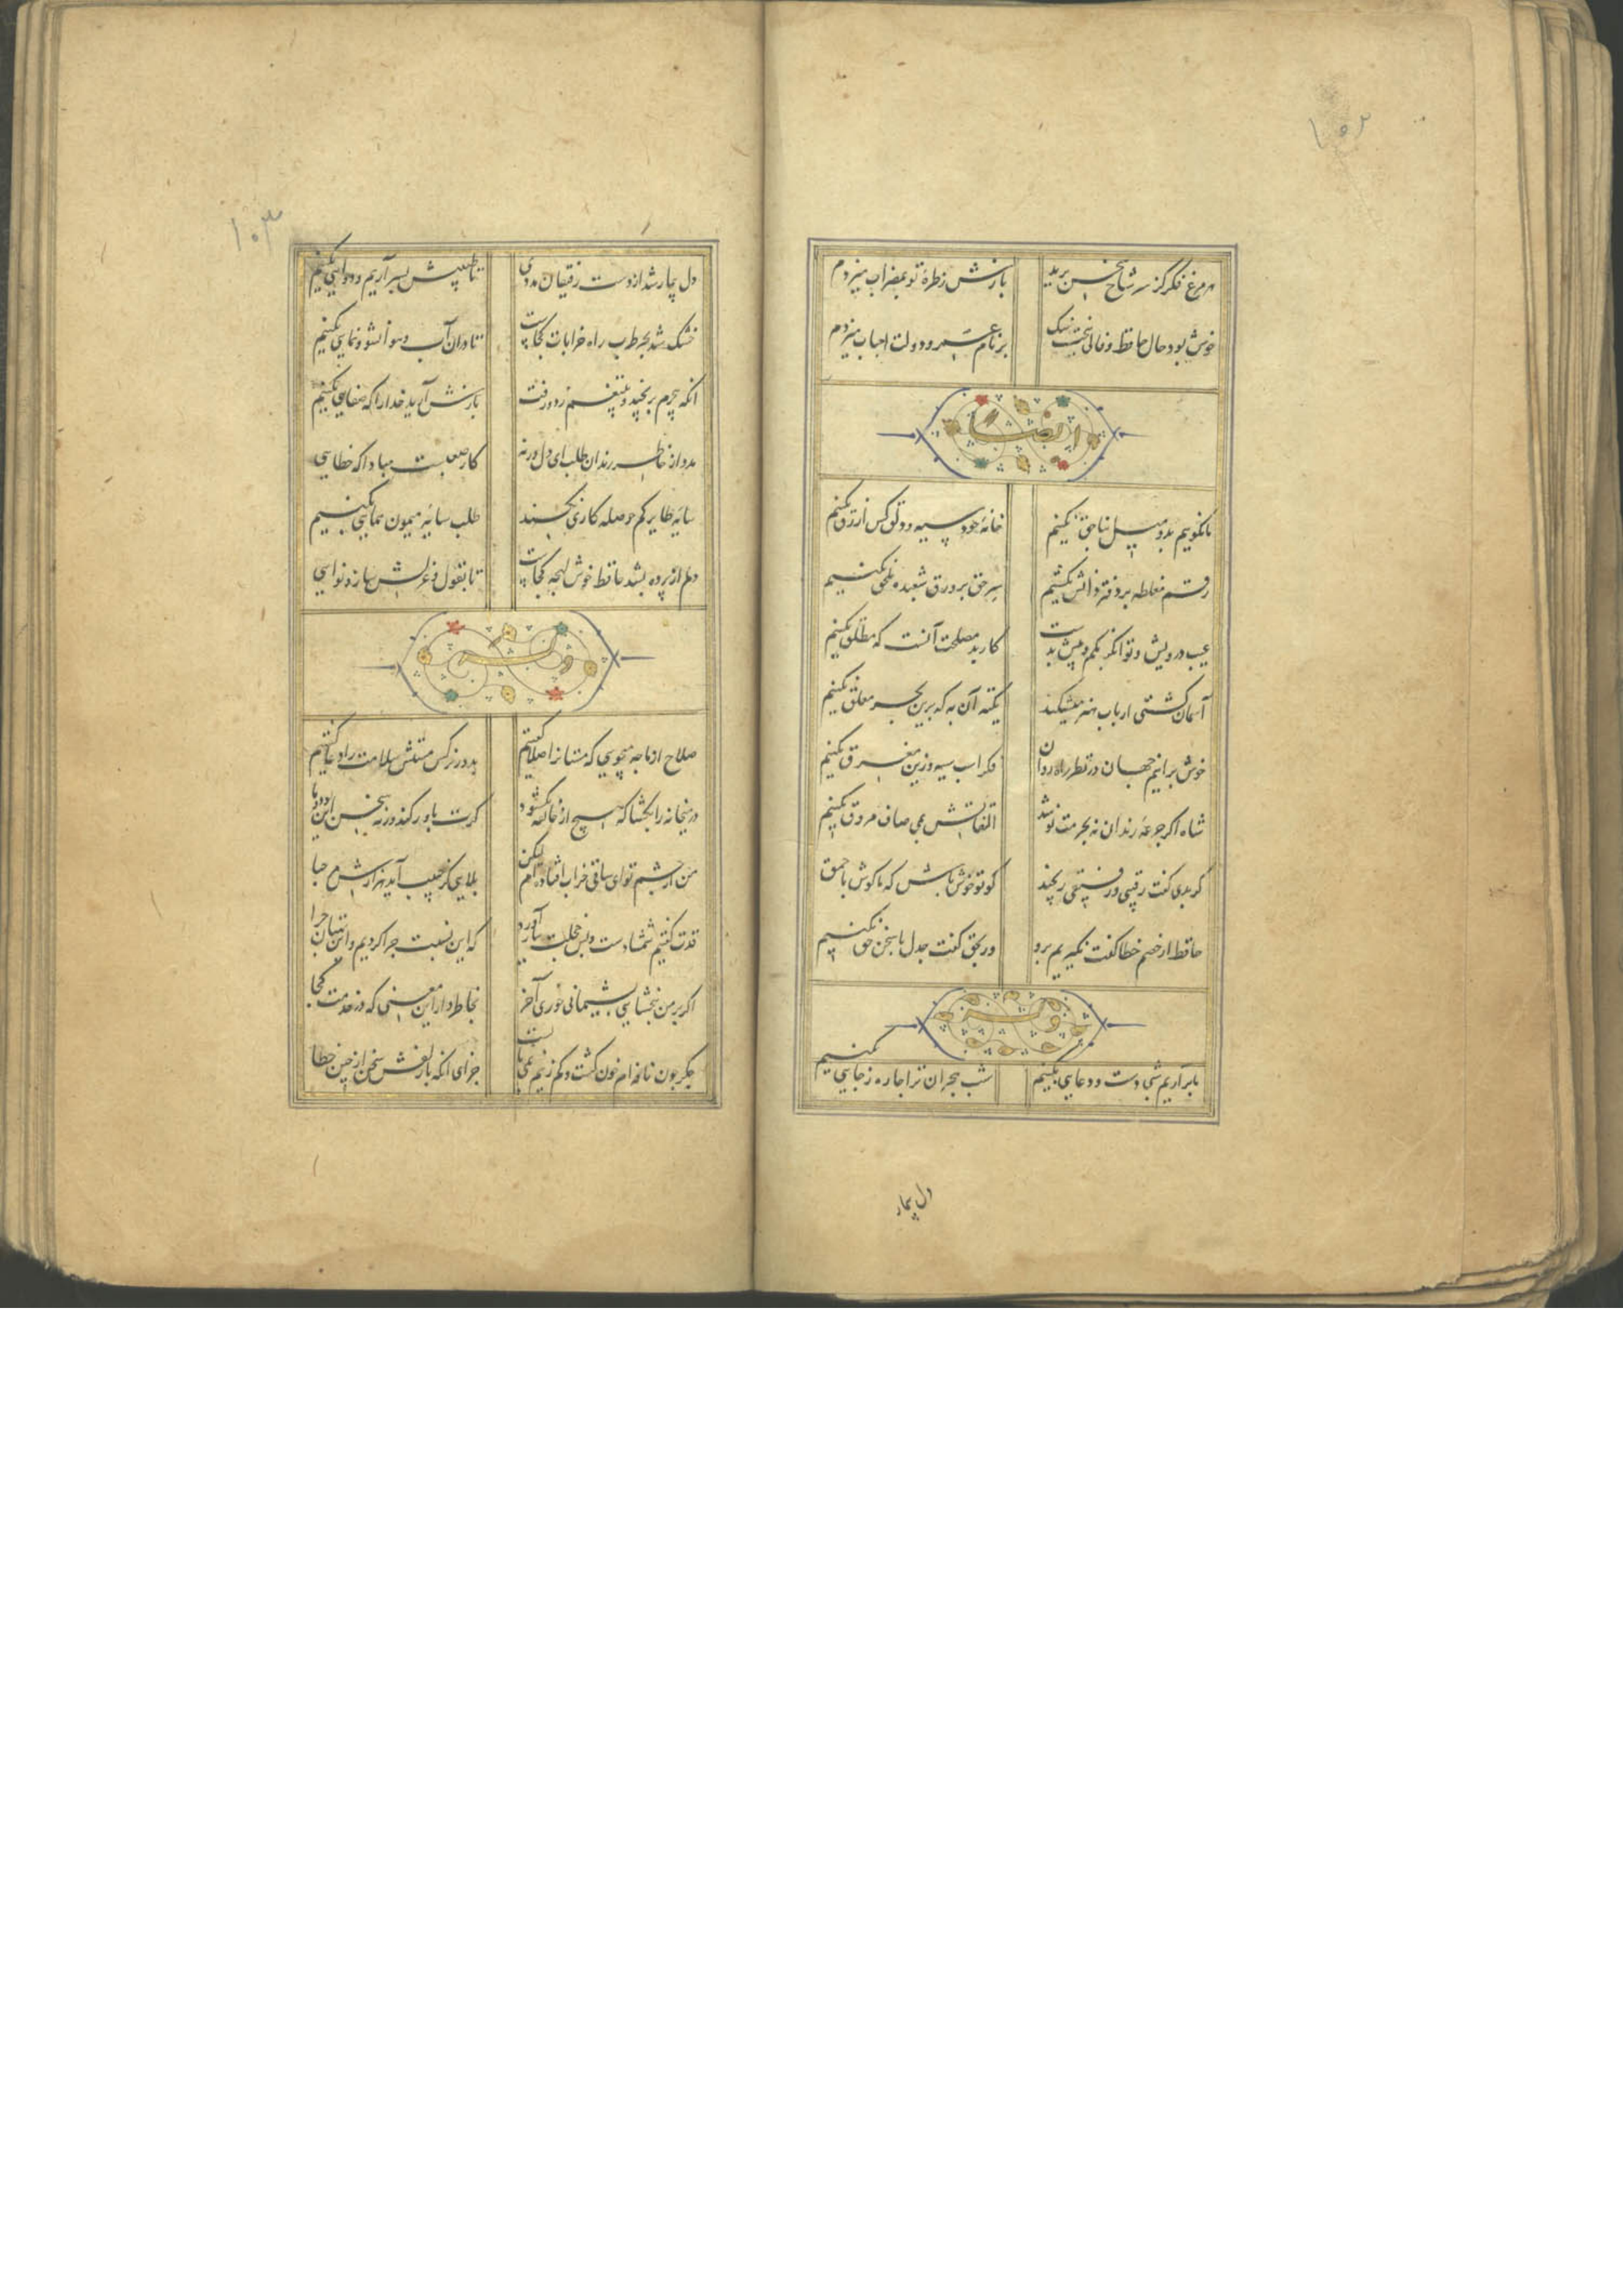 ۱۰۲
هر مرغ فکر کز سر شاخ سخن پرید بازش ز طره تو بمضراب میزدم
خوش بود حال حافظ و فالی ببخت نیک بر نام عمر و دولت احباب میزدم
ایضاً
ما نگوییم بد و میل بناحق نکنیم جامه کس سیه و دلق کس ازرق نکنیم
رقم مغلطه بر دفتر دانش نکشیم سر حق بر ورق شعبده ملحق نکنیم
عیب درویش و توانگر بکم و بیش بدست کار بد مصلحت آنست که مطلق نکنیم
آسمان کشتی ارباب هنر میشکند تکیه آن به که برین بحر معلق نکنیم
خوش برانیم جهان در نظر راه روان فکر اسب سیه و زین مغرق نکنیم
شاه اگر جرعه رندان نه بحرمت نوشد التفاتش بمی صاف مروق نکنیم
گر بدی گفت رقیبی و رفیقی رنجید گو تو خوش باش که ما گوش باحمق نکنیم
حافظ ار خصم خطا گفت نگیریم برو ور بحق گفت جدل با سخن حق نکنیم
وله
ما برآریم شبی دست و دعایی بکنیم شب هجران ترا چاره ز جایی بکنیم
دل بیمار
۱۰۳
دل بیمار شد از دست رفیقان مددی تا طبیبش بسر آریم و دوایی بکنیم
خشک شد بیخ طرب راه خرابات کجاست تا در آن آب و هوا نشو و نمایی بکنیم
آنکه بی جرم برنجید و بتیغم زد و رفت بازش آرید خدا را که صفایی بکنیم
مدد از خاطر رندان طلب ای دل ورنه کار صعبست مبادا که خطایی
سایه طایر کم حوصله کاری نکند طلب سایه میمون همایی بکنیم
دلم از پرده بشد حافظ خوش لهجه کجاست تا بقول و غزلش ساز و نوایی
وله
صلاح از ما چه میجویی که مستانرا صلا گفتیم بدور نرگس مستش سلامت را دعا گفتیم
در میخانه را بگشا که هیچ از خانقه نگشود گرت باور کند ورنه سخن این بود و ما
من از چشم تو ای ساقی خراب افتاده ام لیکن بلایی کز حبیب آید هزارش مرحبا
قدت گفتیم شمشادست و بس خجلت ببار آورد که این نسبت چرا کردیم و این بهتان چرا
اگر بر من نبخشایی پشیمانی خوری آخر بخاطر دار این معنی که در خدمت کجا
جگر چون نافه ام خون گشت و کم زینم نمی بایست جزای آنکه با زلفش سخن از چین خطا